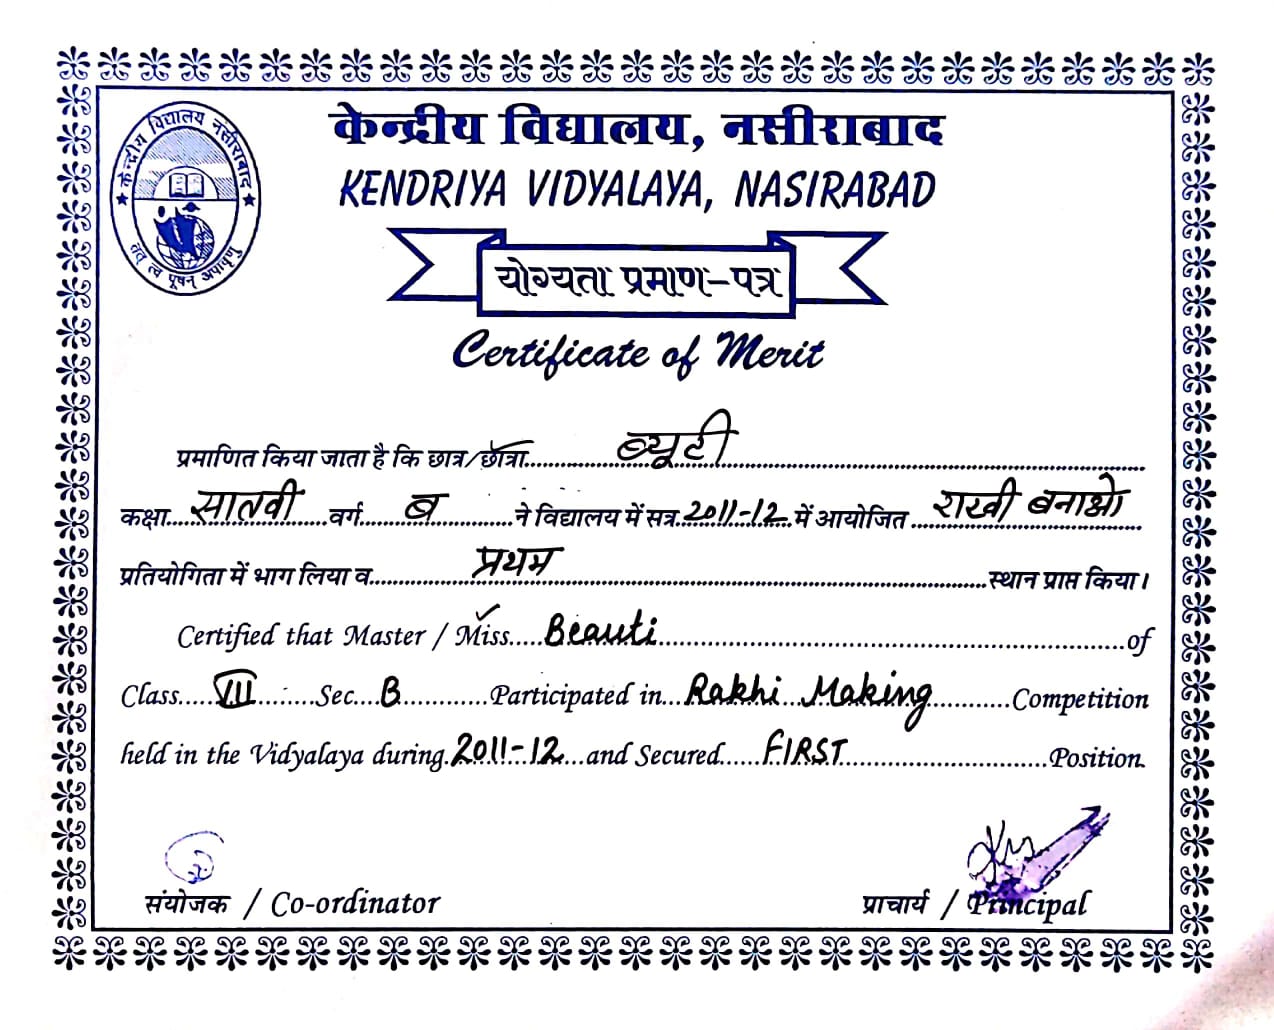 केन्द्रीय विद्यालय नसीराबाद
तत् त्वं पूषन् अपावृणु
केन्द्रीय विद्यालय, नसीराबाद
KENDRIYA VIDYALAYA, NASIRABAD
योग्यता प्रमाण-पत्र
Certificate of Merit
प्रमाणित किया जाता है कि छात्र/छात्रा ब्यूटी
कक्षा सातवी वर्ग ब ने विद्यालय में सत्र 2011-12 में आयोजित राखी बनाओ
प्रतियोगिता में भाग लिया व प्रथम स्थान प्राप्त किया।
Certified that Master / Miss Beauti of
Class VII Sec B Participated in Rakhi Making Competition
held in the Vidyalaya during 2011-12 and Secured FIRST Position
संयोजक / Co-ordinator
प्राचार्य / Principal